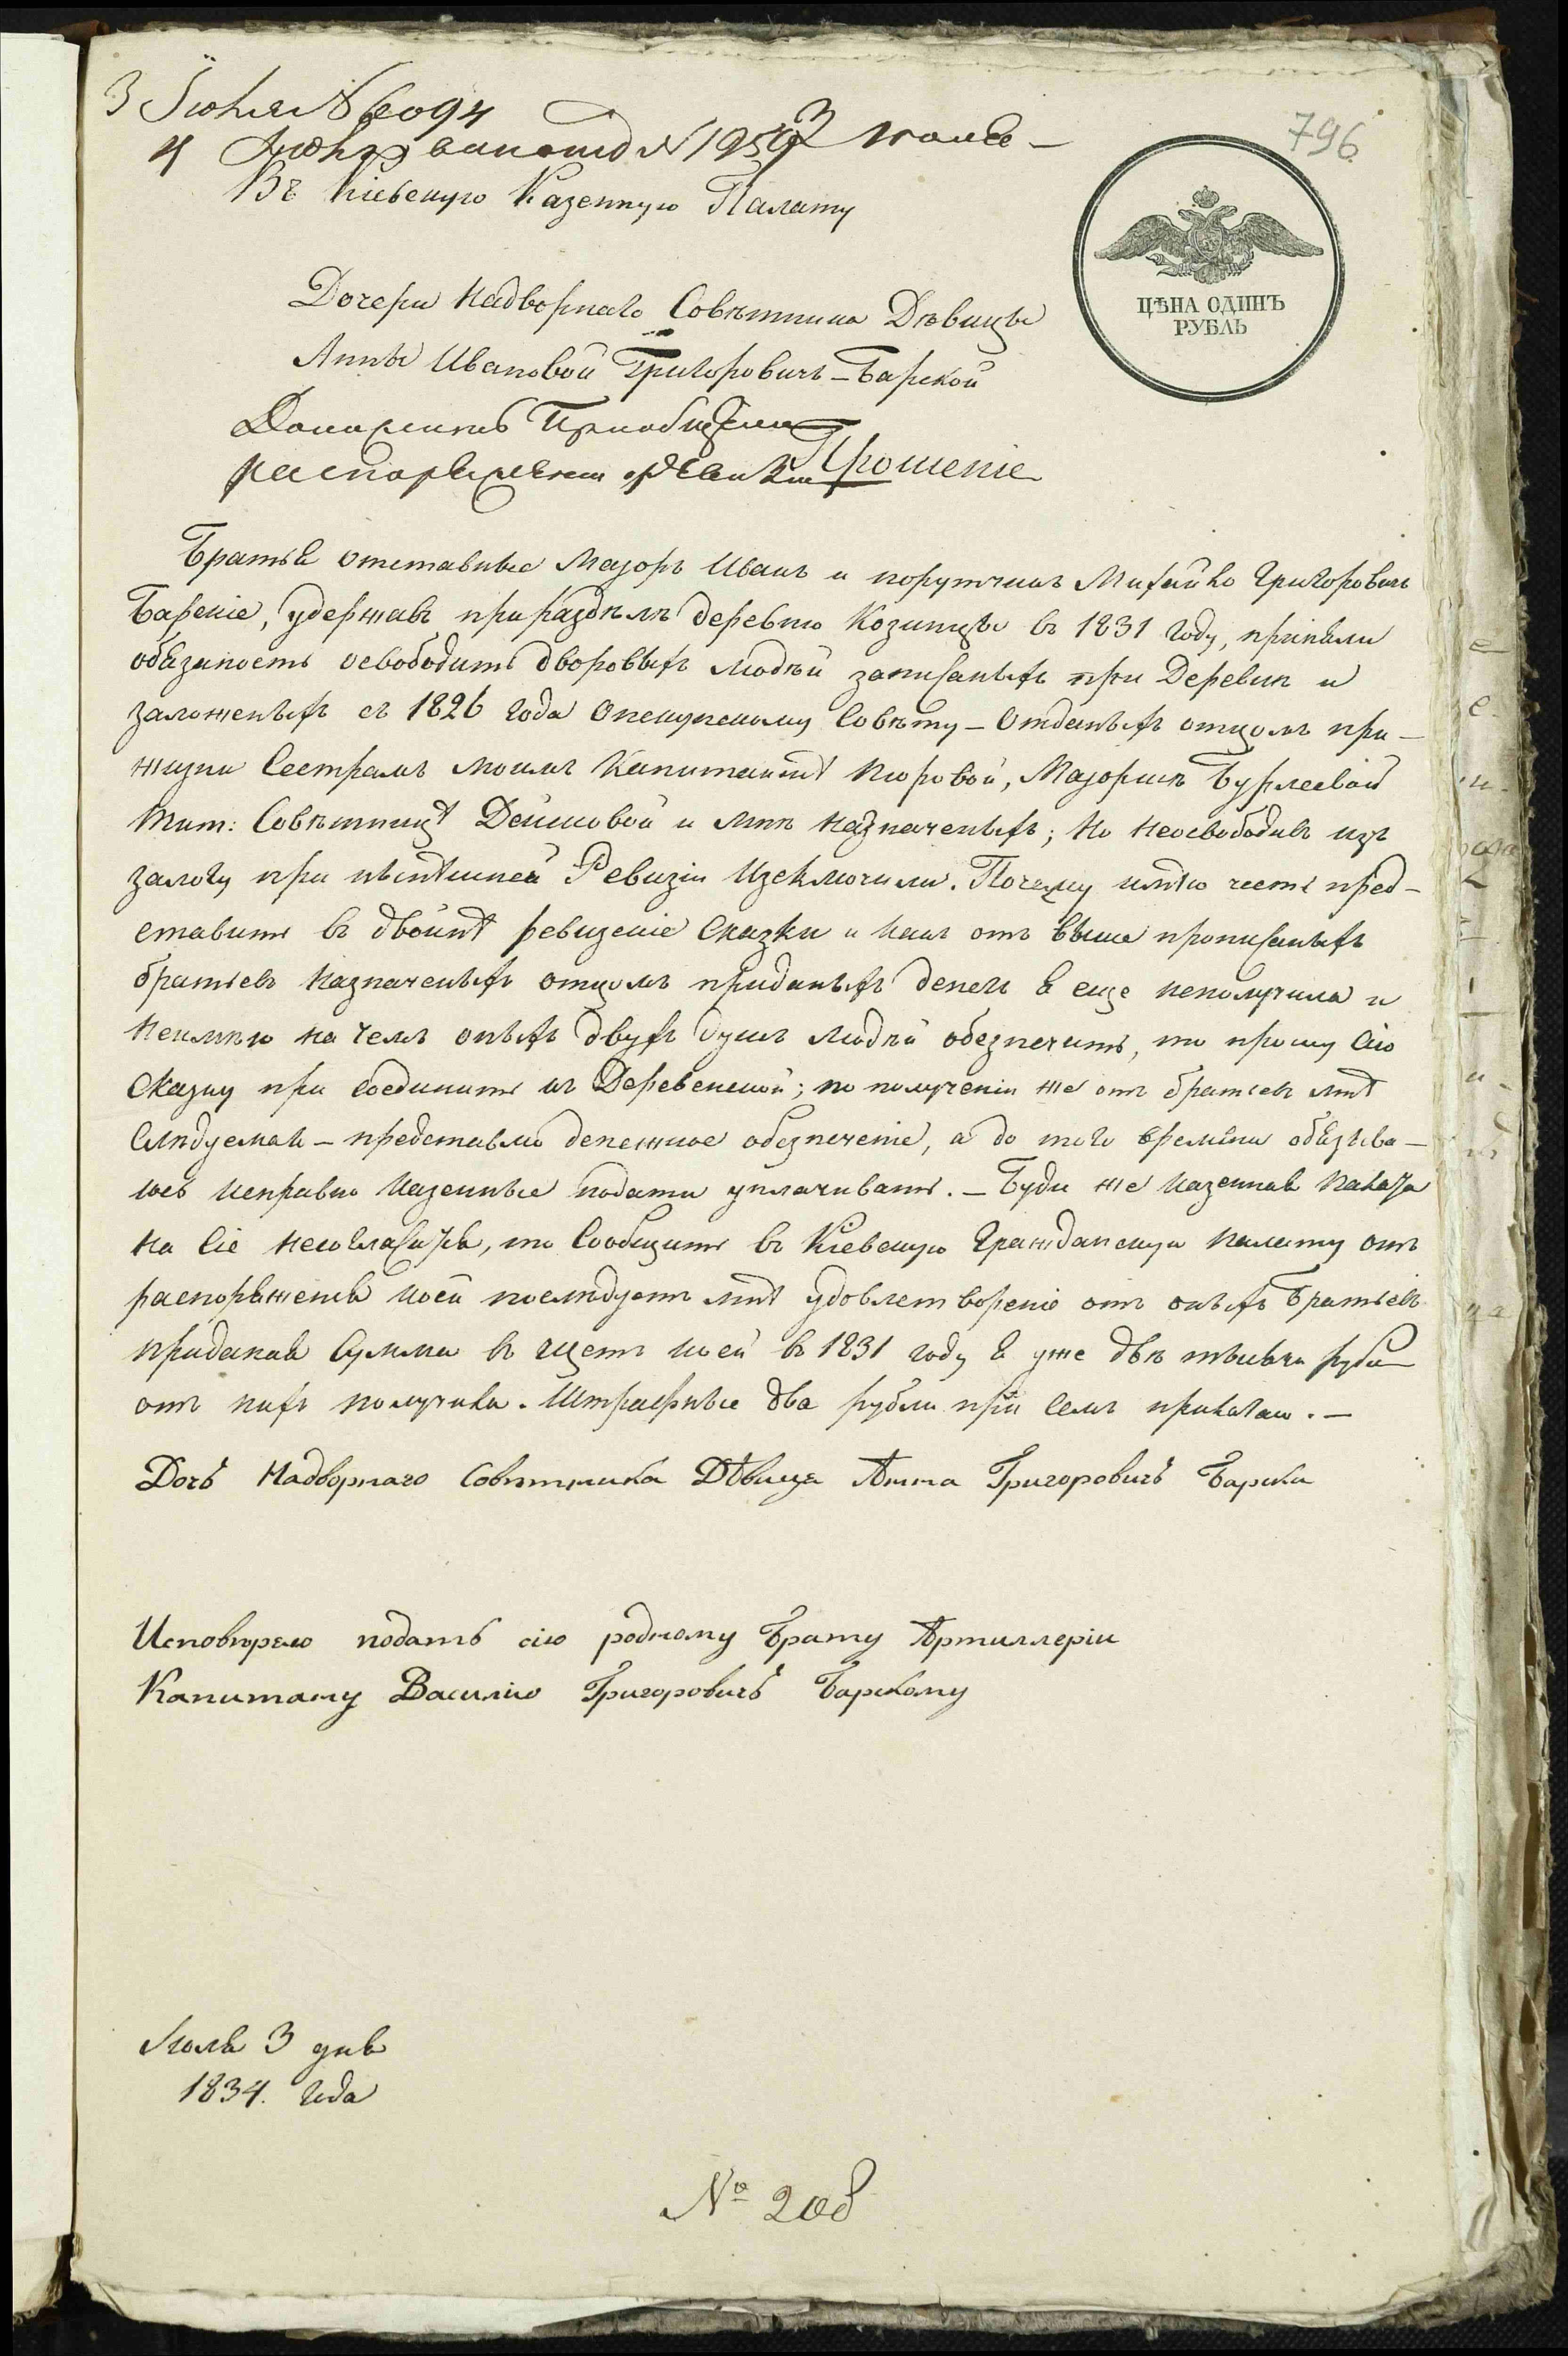 796
3 Іюля № 6094
4
Въ Кіевскую Казенную Палату
ЦѢНА ОДИНЪ
РУБЛЬ
Дочери Надворнаго Совѣтника Дѣвицы
Анны Ивановой Григоровичъ-Барской
Прошеніе
Братья отставные Маіоръ Иванъ и порутчикъ Михайло Григоровичъ
Барскіе, удержавъ при раздѣлѣ деревню Козинцы въ 1831 году, приняли
обязаность освободить дворовыхъ людѣй записаныхъ при Деревнѣ и
заложеныхъ съ 1826 года Опекунскому Совѣту – Отданыхъ отцомъ при –
жизни Сестрамъ моимъ Капитаншѣ Кировой, Маіоршѣ Бурлеевой
Тит: Совѣтницѣ и мнѣ назначеныхъ; но неосвободивъ изъ
залогу при нынѣшней Ревизіи Изключили. Почему имѣю честь пред-
ставить въ двойнѣ ревизскіе Сказки и какъ отъ выше прописаныхъ
братьевъ назначеныхъ отцомъ приданыхъ денегъ я еще неполучила и
неимѣю на чемъ оныхъ двухъ душъ людѣй обезпечить, то прошу Сію
Сказку при соединить къ Деревенской; по полученіи же отъ братьевъ мнѣ
Слѣдуемой – представлю денежное обезпеченіе, а до того времѣни обязыва –
юсь исправно казенные подати уплачивать. – Буди же казенная Палата
на Сіе несогласится, то Сообщить въ Кіевскую Гражданскую Палату отъ
распоряженія коей послѣдуетъ мнѣ удовлетвореніе отъ оныхъ Братьевъ
приданая Сумма въ щетъ коей въ 1831 году я уже двѣ тысячи рубл
отъ нихъ получила. Штрафные два рубли при семъ прилагаю. –
Дочь Надворнаго Совѣтника Дѣвица Анна Григоровичъ Барска
Исповѣряю подать сію родному Брату Артиллеріи
Капитану Василію Григоровичъ Барскому
Іюля 3 дня
1834. года
№ 208